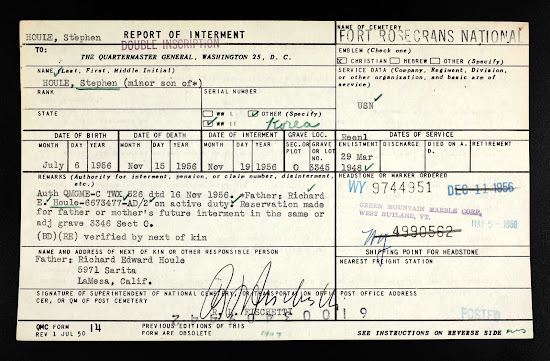 HOULE, Stephen
REPORT OF INTERMENT
DOUBLE INSCRIPTION
NAME OF CEMETERY
FORT ROSECRANS NATIONAL
TO:
THE QUARTERMASTER GENERAL, WASHINGTON 25, D. C.
EMBLEM (Check one)
CHRISTIAN HEBREW OTHER (Specify)
NAME (Last, First, Middle Initial)
HOULE, Stephen (minor son of*)
SERVICE DATA (Company, Regiment, Division, or other organization, and basic arm of service)
USN
RANK
SERIAL NUMBER
STATE
WW I OTHER (Specify)
WW II Korea
DATE OF BIRTH
DATE OF DEATH
DATE OF INTERMENT
GRAVE LOC.
MONTH DAY YEAR
MONTH DAY YEAR
MONTH DAY YEAR
SEC. OR PLOT
GRAVE NO.
July 6 1956
Nov 15 1956
Nov 19 1956
O 3345
DATES OF SERVICE
ENLISTMENT
DISCHARGE
DIED ON A. D.
RETIREMENT
Reenl
29 Mar
1948
REMARKS (Authority for interment, pension, or claim number, disinterment, etc.)
Auth QMGME-C TWX 526 dtd 16 Nov 1956. *Father; Richard
E. Houle-6673477-AD/2 on active duty. Reservation made
for father or mother's future interment in the same or
adj grave 3346 Sect O.
(BD)(RE) verified by next of kin
HEADSTONE OR MARKER ORDERED
WY 9744351 DEC 11 1956
GREEN MOUNTAIN MARBLE CORP.
WEST RUTLAND, VT.
4990562
SHIPPING POINT FOR HEADSTONE
NAME AND ADDRESS OF NEXT OF KIN OR OTHER RESPONSIBLE PERSON
Father; Richard Edward Houle
5971 Sarita
LaMesa, Calif.
NEAREST FREIGHT STATION
SIGNATURE OF SUPERINTENDENT OF NATIONAL CEMETERY, OR TRANSPORTATION OFFICER, OR QM OF POST CEMETERY
POST OFFICE ADDRESS
POSTED
QMC FORM 14
REV 1 JUL 50
PREVIOUS EDITIONS OF THIS
FORM ARE OBSOLETE
SEE INSTRUCTIONS ON REVERSE SIDE